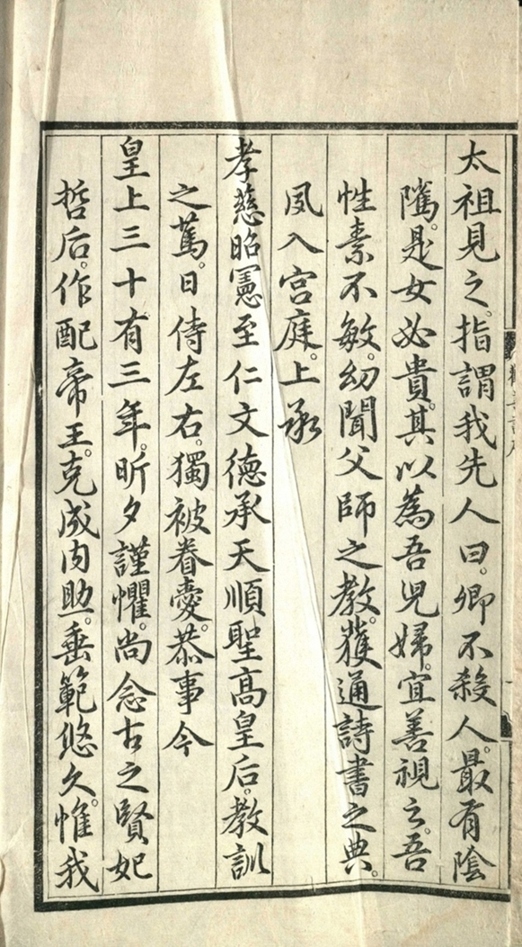 太祖見之。指謂我先人曰。卿不殺人。最有陰
隲。是女必貴。其以為吾兒婦。宜善視之。吾
性素不敏。幼聞父師之教。獲通詩書之典。
夙入宮庭。上承
孝慈昭憲至仁文德承天順聖高皇后。教訓
之篤。日侍左右。獨被眷愛。恭事今
皇上三十有三年。昕夕謹懼。尚念古之賢妃
哲后。作配帝王。克成內助。垂範悠久。惟我